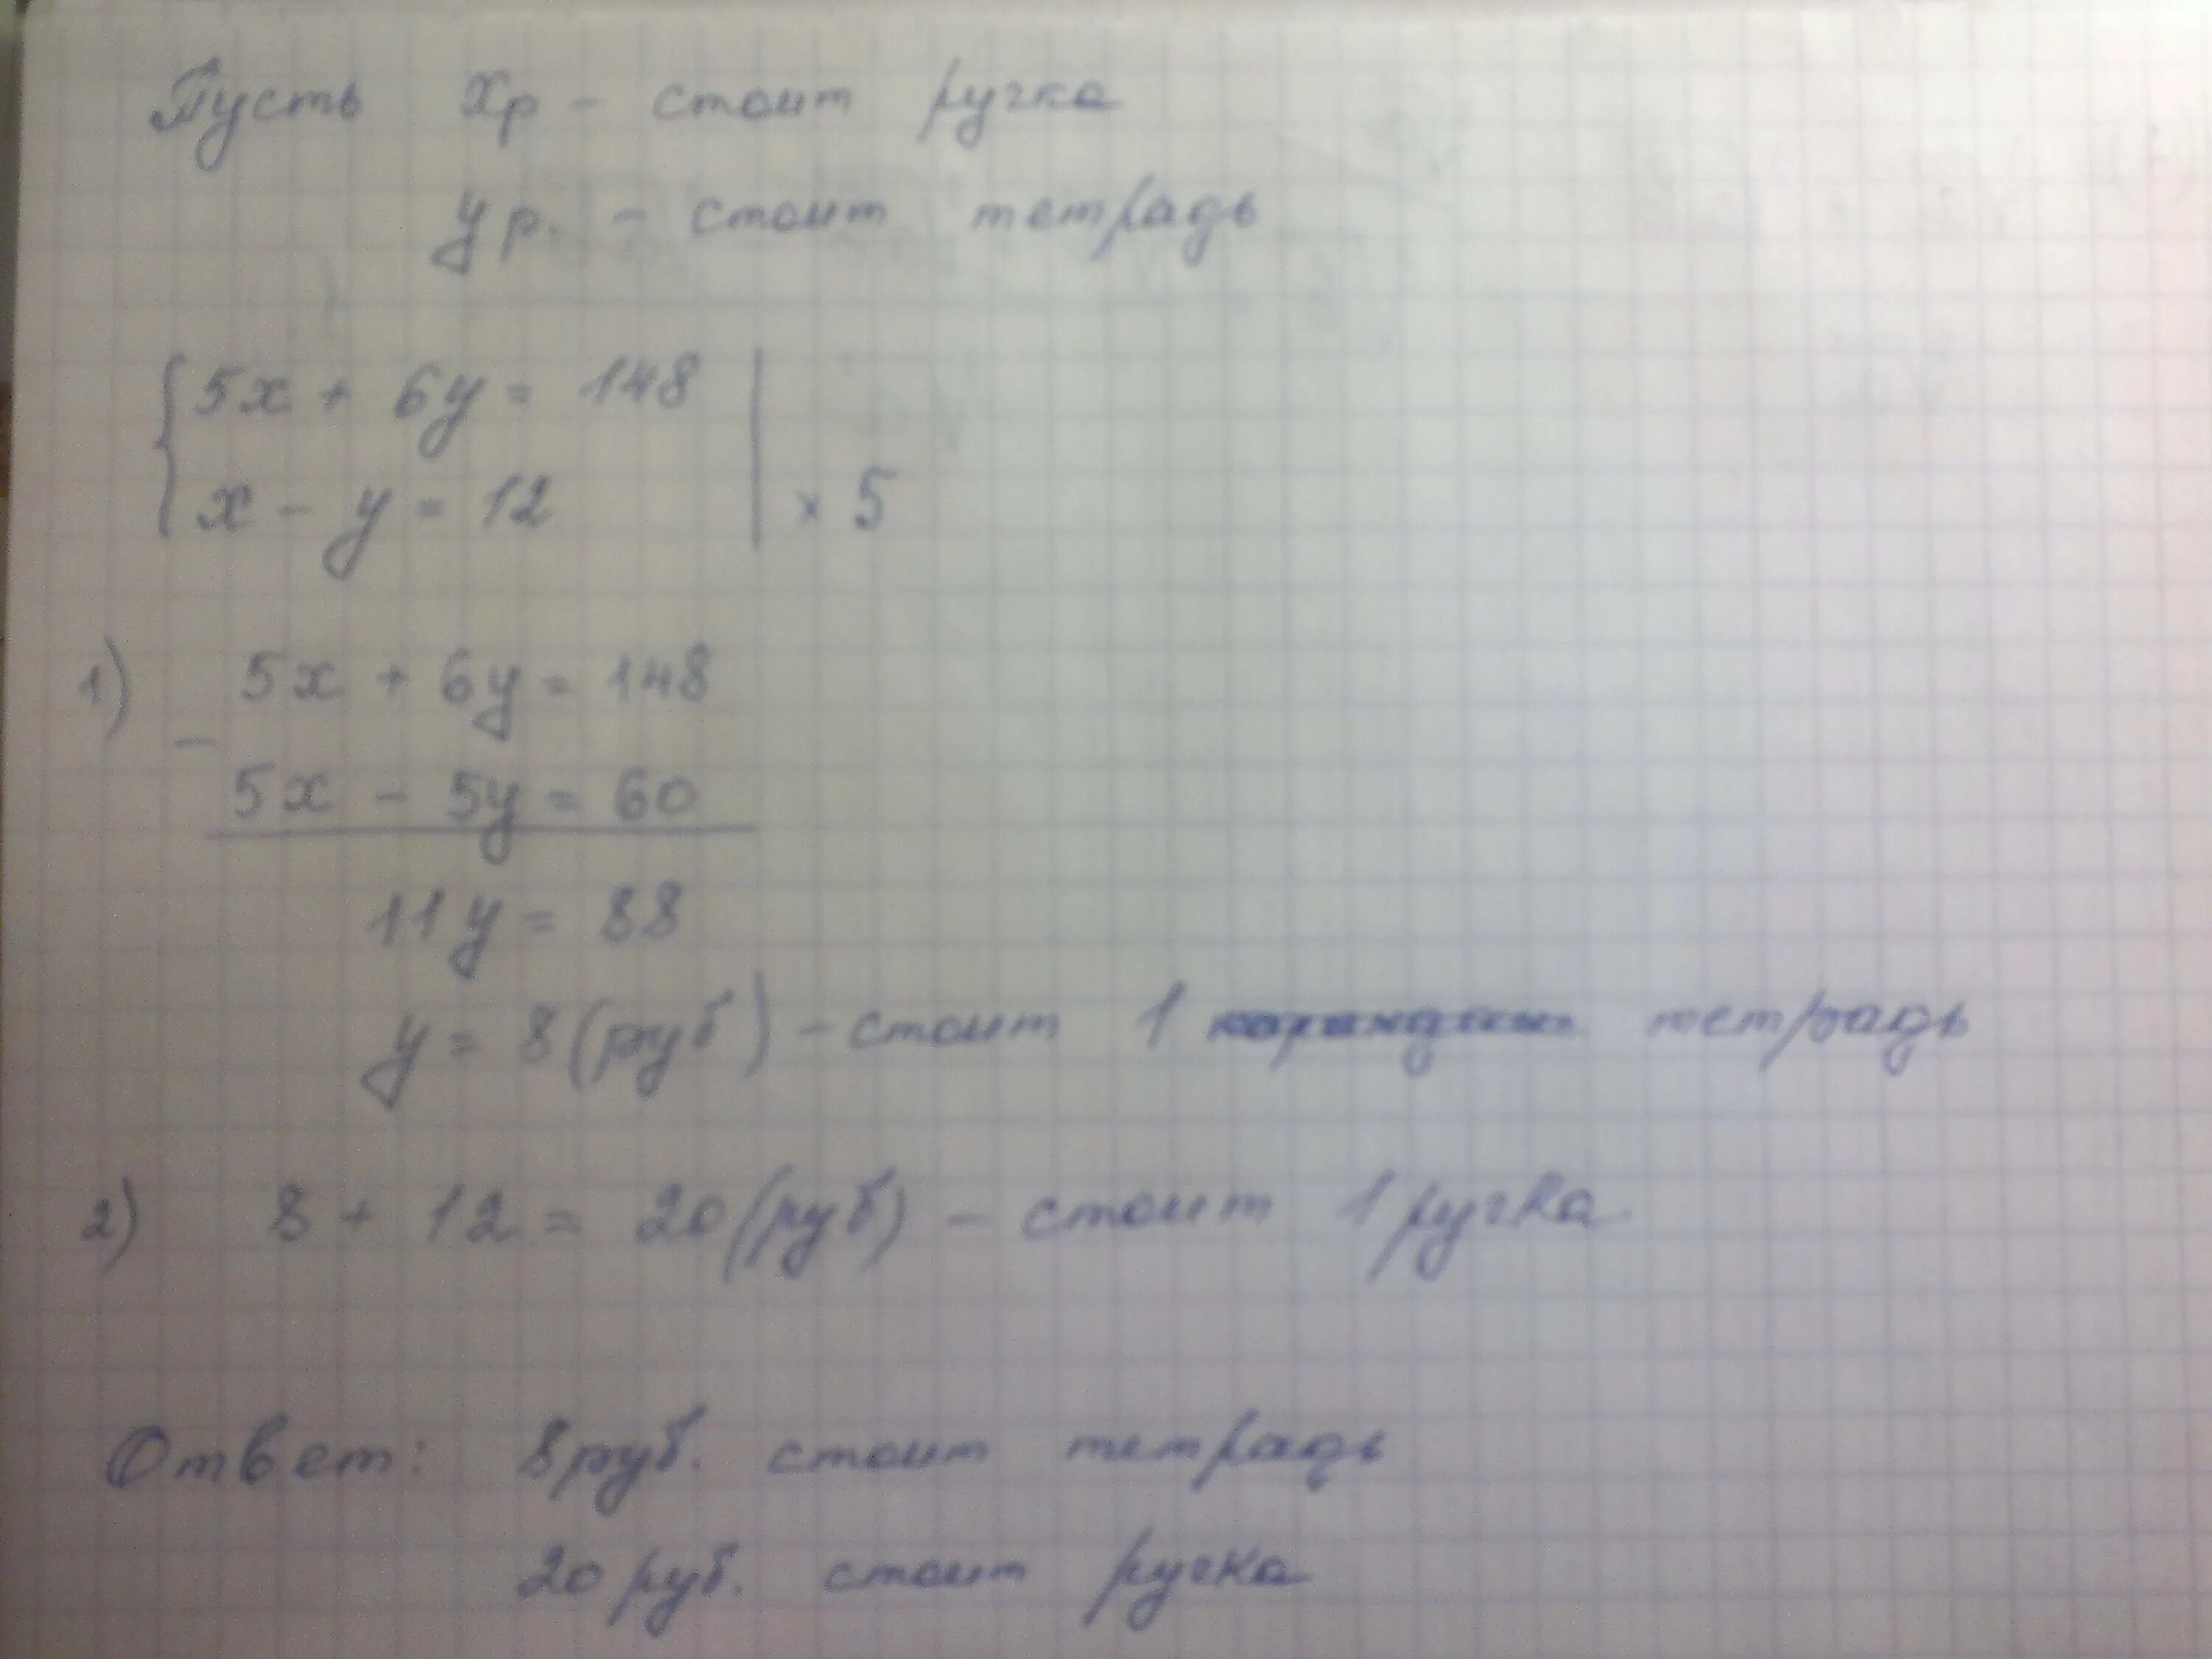 Пусть хр - стоит ручка
ур. - стоит тетрадь
5х + 6у = 148
х - у = 12 | × 5
1) 5х + 6у = 148
-
5х - 5у = 60
11у = 88
у = 8 (руб) - стоит 1 тетрадь
2) 8 + 12 = 20 (руб) - стоит 1 ручка
Ответ: 8 руб. стоит тетрадь
20 руб. стоит ручка